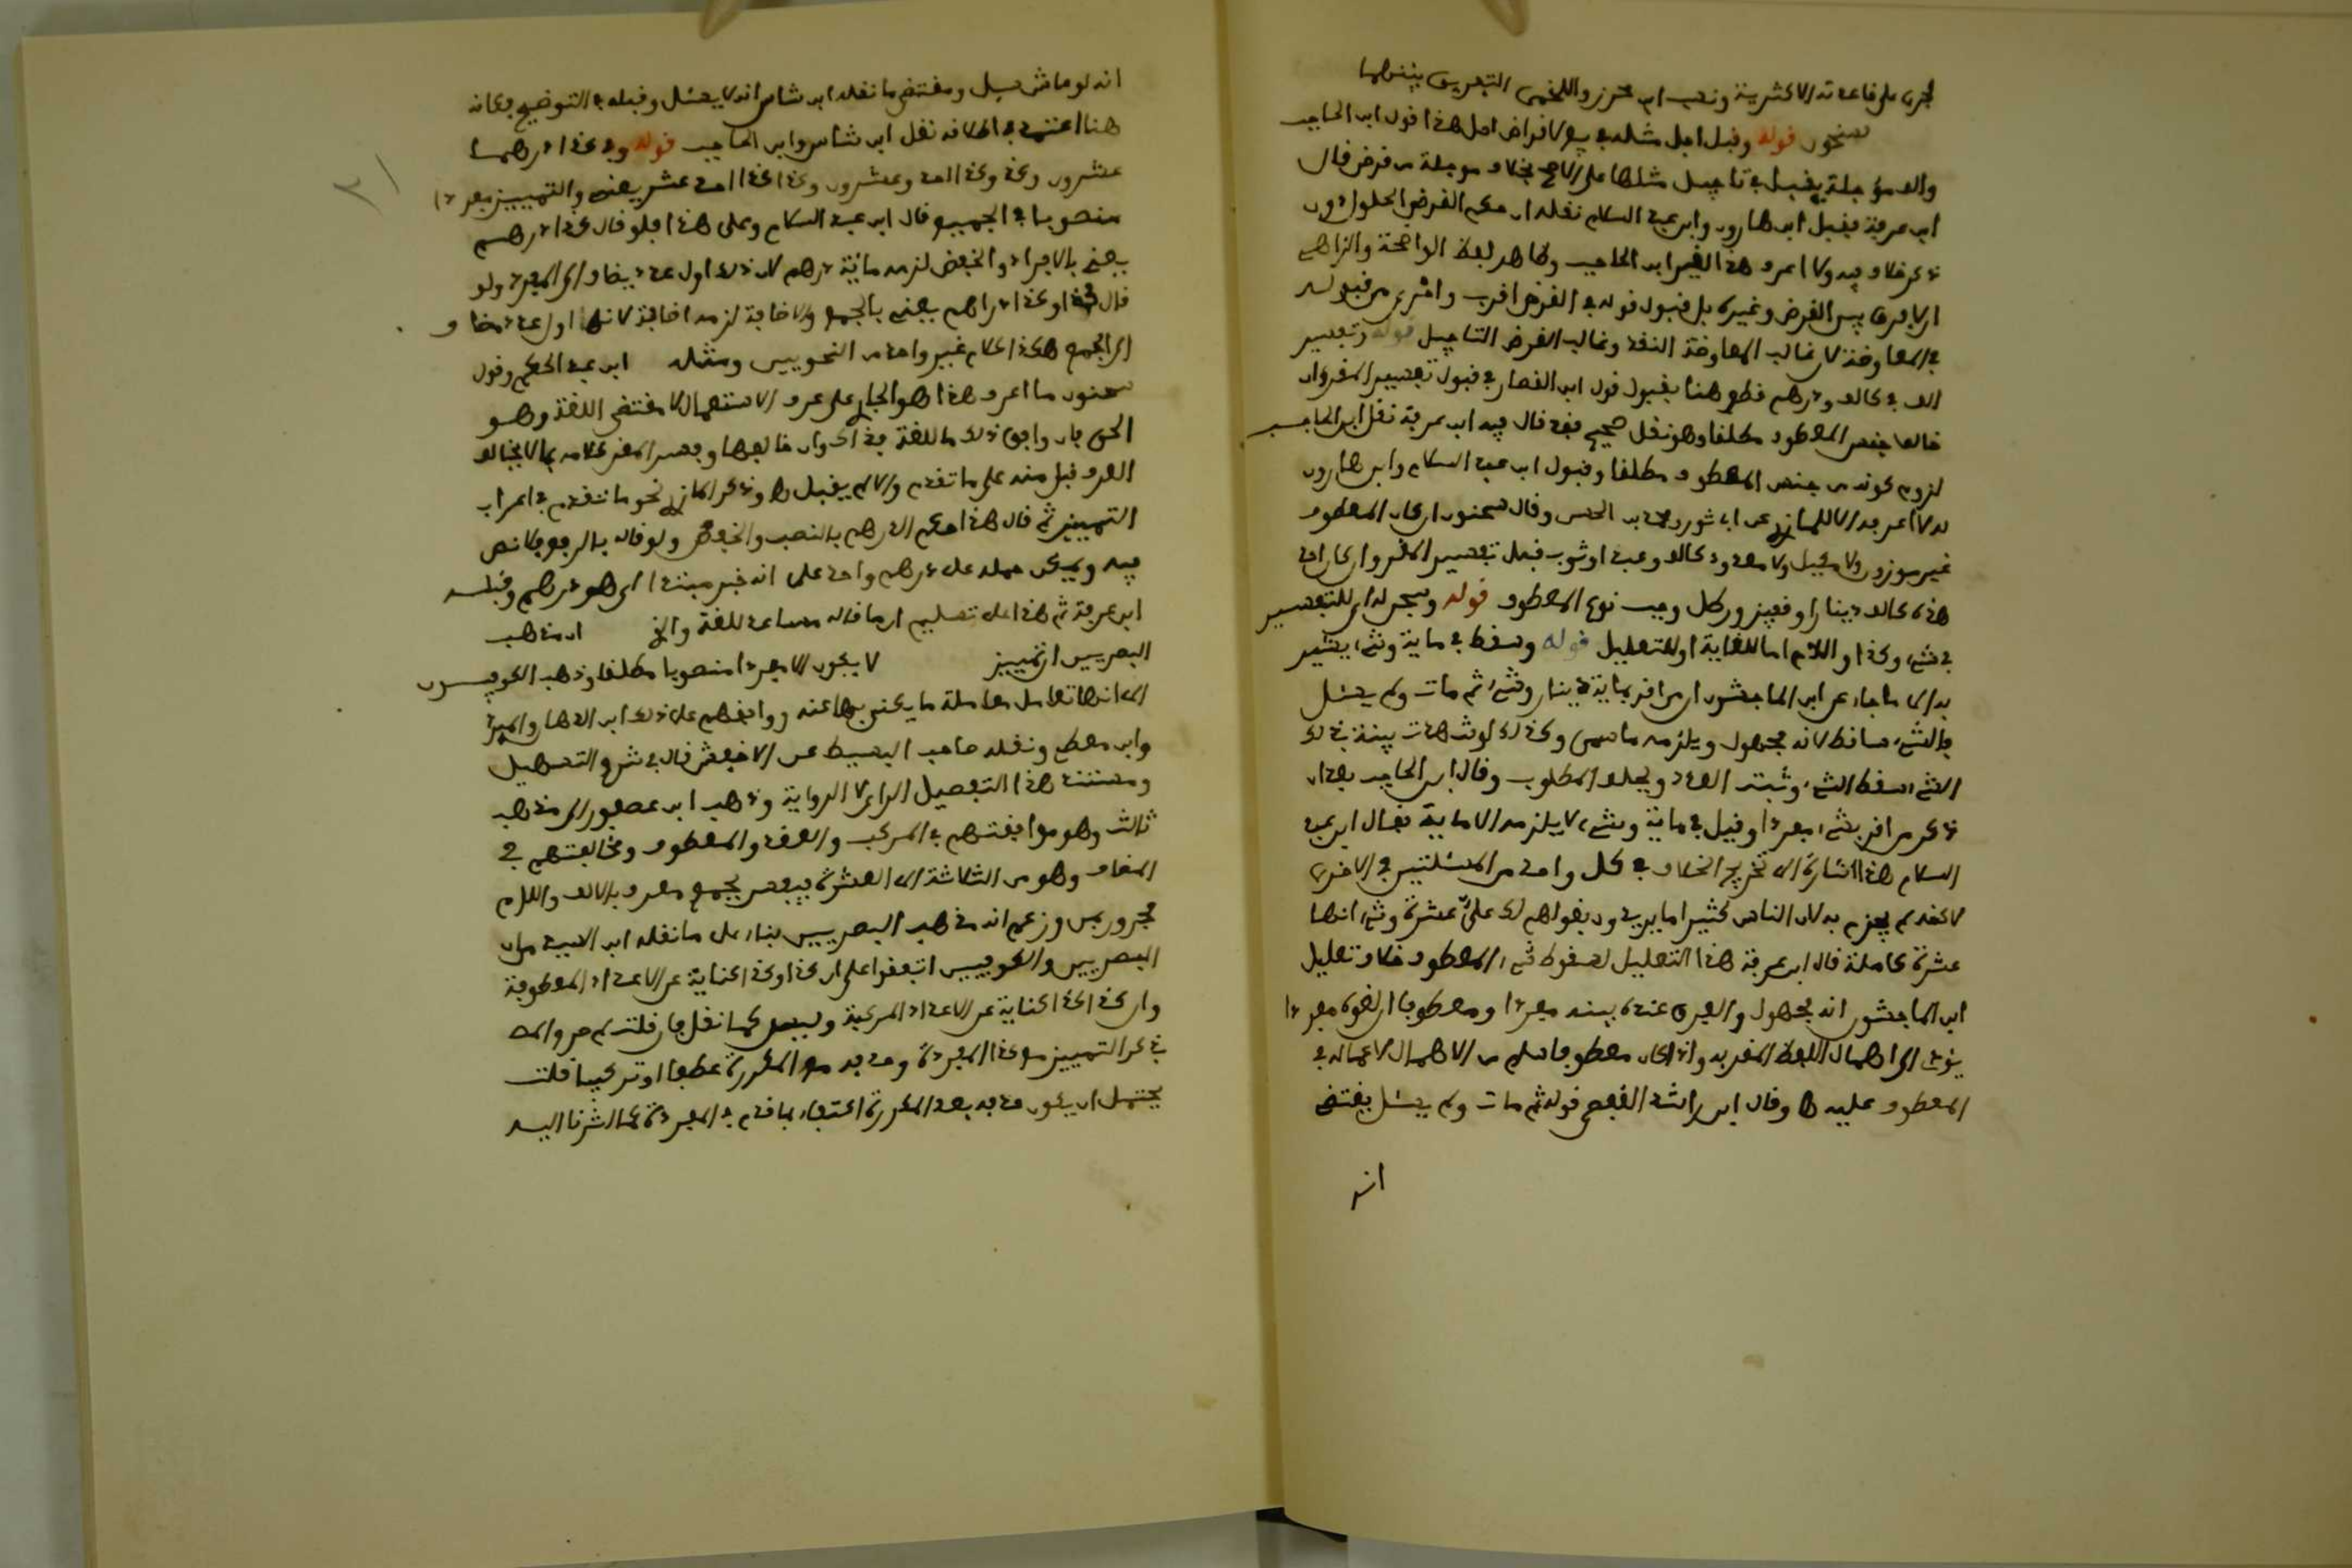 جرى على قاعدته الاكثرية ونسب ابن محرز واللخمي التفريق بينهما
لسحنون قوله وقبل اجل مثله في بيع لا قرض اصل هذا قول ابن الحاجب
والف مؤجلة يقبل في تاجيل مثلها على الاصح بخلاف موجلة من قرض قال
ابن عرفة فقبل ابن هارون وابن عبد السلام نقله ان حكم القرض الحلول دون
ذكر خلاف فيه ولا اعرف هذا لغير ابن الحاجب وظاهر لفظ الواضحة والزاهي
ان لا فرق بين القرض وغيره بل قبول قوله في القرض اقرب واحرى من قبوله
في المعاوضة لان غالب المعاوضة النقد وغالب القرض التاجيل قوله وتفسير
الف في كالف ودرهم قطع هنا بقبول قول ابن القصار في قبول تفسير المقر وان
خالف جنس المعطوف مطلقا وهو نقل صحيح فقد قال فيه ابن عرفة نقل ابن الحاجب
لزوم كونه من جنس المعطوف مطلقا وقبول ابن عبد السلام وابن هارون
له لا اعرفه الا للمازري عن ابي ثور ومحمد بن الحسن وقال سحنون ان كان المعطوف
غير موزون ولا مكيل ولا معدود كالف وعبد او ثوب قبل تفسير المقر وان كان احد
هذه كالف دينارا وقفيز وركل وجب نوع المعطوف قوله وسجل لاي للتفسير
في شيء وكذا واللام اما للغاية او للتعليل قوله وسقط في ماية وشيء يشير
به الى ما جاء عن ابن الماجشون ان من اقر بماية دينار وشيء ثم مات ولم يسئل
فالشيء ساقط لانه مجهول ويلزمه ما سمى وكذلك لو شهدت بينة بذلك
الشيء سقط الشيء وثبت العدد ويحلف المطلوب وقال ابن الحاجب بعد ان
ذكر من اقر بشيء مفردا وقيل في ماية وشيء لا يلزمه الا ماية فقال ابن عبد
السلام هذا اشارة الى تخريج الخلاف في كل واحد من المسئلتين في الاخرى
لاكنه لم يجزم به لان الناس كثيرا ما يريدون بقولهم لك علي عشرة وشيء انها
عشرة كاملة قال ابن عرفة هذا التعليل لسقوط شيء المعطوف خلاف تعليل
ابن الماجشون انه مجهول والفرق عنده بينه مفردا ومعطوفا ان لغوه مفردا
يؤدي الى اهمال اللفظ المقر به واذا كان معطوفا سلم من الاهمال لاعماله في
المعطوف عليه ها وقال ابن راشد القفصي قوله ثم مات ولم يسئل يقتضي
انه
انه لو ما مات سيل ومقتضى ما نقله ابن شاس انه لا يسئل وقبله في التوضيح فكانه
هنا اعتمد في اطلاقه نقل ابن شاس وابن الحاجب قوله وكذا درهما
عشرون وكذا وكذا احد وعشرون وكذا كذا احد عشر يعني والتمييز مفردا
منصوبا في الجميع قال ابن عبد السلام وعلى هذا فلو قال كذا درهم
يعني بالافراد والخفض لزمه ماية درهم لان ذلك اول عدد يضاف الى المفرد ولو
قال كذا دراهم يعني بالجمع والاضافة لزمه اضافة لانها اول عدد مضاف
الى الجمع هكذا كلام غير واحد من النحويين ومثله ابن عبد الحكم وقول
سحنون ما اعرف هذا هو الجار على عرف الاستعمال لا مقتضى اللغة وهو
الحق فان وافق ذلك ما للغة فذاك وان خالفها وفسر المقر كلامه بما لا يخالف
العرف قبل منه على ما تقدم والا لم يقبل ها وذكر المازري نحو ما تقدم في اعراب
التمييز ثم قال هذا حكم الدرهم بالنصب والخفض ولو قاله بالرفع فلا نص
فيه ويمكن حمله على درهم واحد على انه خبر مبتدا اي هو درهم وقبله
ابن عرفة ثم هذا على تسليم ان ما قاله مساعد للغة والا ان مذهب
البصريين ان تمييز لا يكون الا مفردا منصوبا مطلقا وذهب الكوفيون
الى انها تعامل معاملة ما يكنى بها عنه ووافقهم على ذلك ابن الدهان والمبرد
وابن معط ونقله صاحب البسيط عن الاخفش قال في شرح التسهيل
ومستند هذا التفصيل الراي لا الرواية وذهب ابن عصفور الى مذهب
ثالث وهو موافقتهم في المركب والعقد والمعطوف ومخالفتهم في
المضاف وهو من الثلاثة الى العشرة فيفسر بجمع معرف بالالف واللام
مجرور بمن وزعم انه مذهب البصريين بناء على ما نقله ابن السيد من ان
البصريين والكوفيين اتفقوا على ان كذا وكذا كناية عن الاعداد المعطوفة
وان كذا كذا كناية عن الاعداد المركبة وليس كما نقل فان قلت لم صرح المص
بذكر التمييز مع كذا المفردة وحذفه مع المكررة عطفا او تركيبا قلت
يحتمل ان يكون حذفه بعد المكررة اكتفاء بما قدم في المفردة كما اشرنا اليه